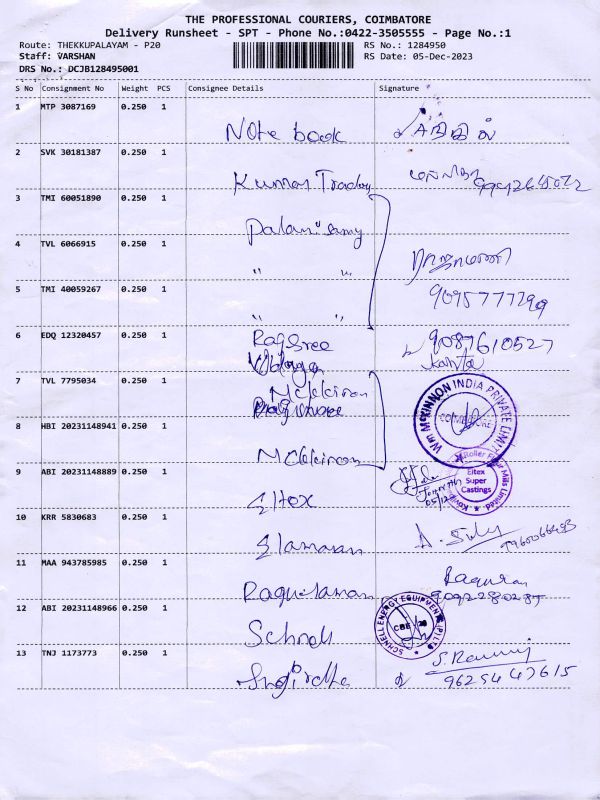 THE PROFESSIONAL COURIERS, COIMBATORE
Delivery Runsheet - SPT - Phone No.:0422-3505555 - Page No.:1
Route: THEKKUPALAYAM - P20 RS No.: 1284950
Staff: VARSHAN RS Date: 05-Dec-2023
DRS No.: DCJB128495001
S No Consignment No Weight PCS Consignee Details Signature
1 MTP 3087169 0.250 1
Note book
2 SVK 30181387 0.250 1
Kumar Trading
3 TMI 60051890 0.250 1
Palani samy
4 TVL 6066915 0.250 1
" "
ராஜாமணி
5 TMI 40059267 0.250 1
" "
6 EDQ 12320457 0.250 1
Ragsree 9087610527
Kavita
7 TVL 7795034 0.250 1
Mckkinon
WM MCKINNON INDIA PRIVATE LIMITED
COIMBATORE
8 HBI 20231148941 0.250 1
Mckkinon
9 ABI 20231148889 0.250 1
Eltex
Eitex
Super
Castings
05/12
10 KRR 5830683 0.250 1
Elamaran
11 MAA 943785985 0.250 1
Raguraman
12 ABI 20231148966 0.250 1
Schnell
SCHNELL ENERGY EQUIPMENTS (P) LTD
CBE
13 TNJ 1173773 0.250 1
9625447615